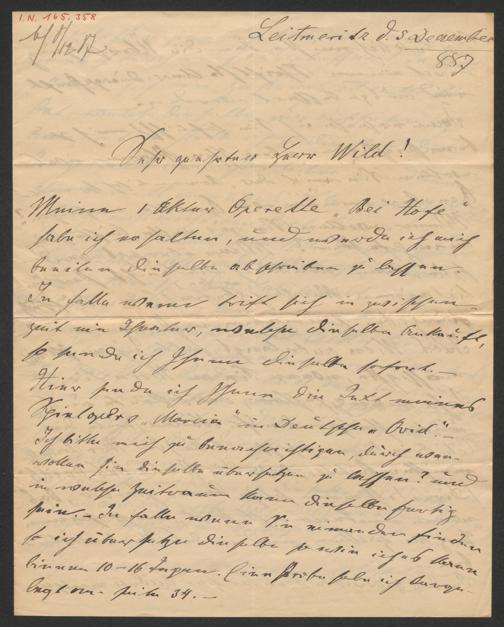 I.N. 165.358
b/ 5/12 87
Leitmeritz d. 3 December
887
Sehr geehrter Herr Wild!
Meine 1 Akter Operette „Bei Hofe“
habe ich erhalten, und werde ich mich
beeilen, dieselbe abschreiben zu lassen.
In falle wenn trift sich in zwischen-
zeit ein Theater, welche dieselbe ankauft,
so sende ich Ihnen dieselbe sofort.—
Hier sende ich Ihnen die Text meines
Spieloper „Marcia“ in Deutsche „Ovid“.—
Ich bitte mich zu benachrichtigen, durch wen
wollen Sie dieselbe übersetzen zu lassen? und
in welche Zeitraum kann dieselbe fertig
sein.— In falle wenn Sie niemanden finden
so ich übersetze dieselbe so wie ich es kann
binnen 10–16 Tagen. Eine Probe habe ich beige-
legt von Seite 34.—